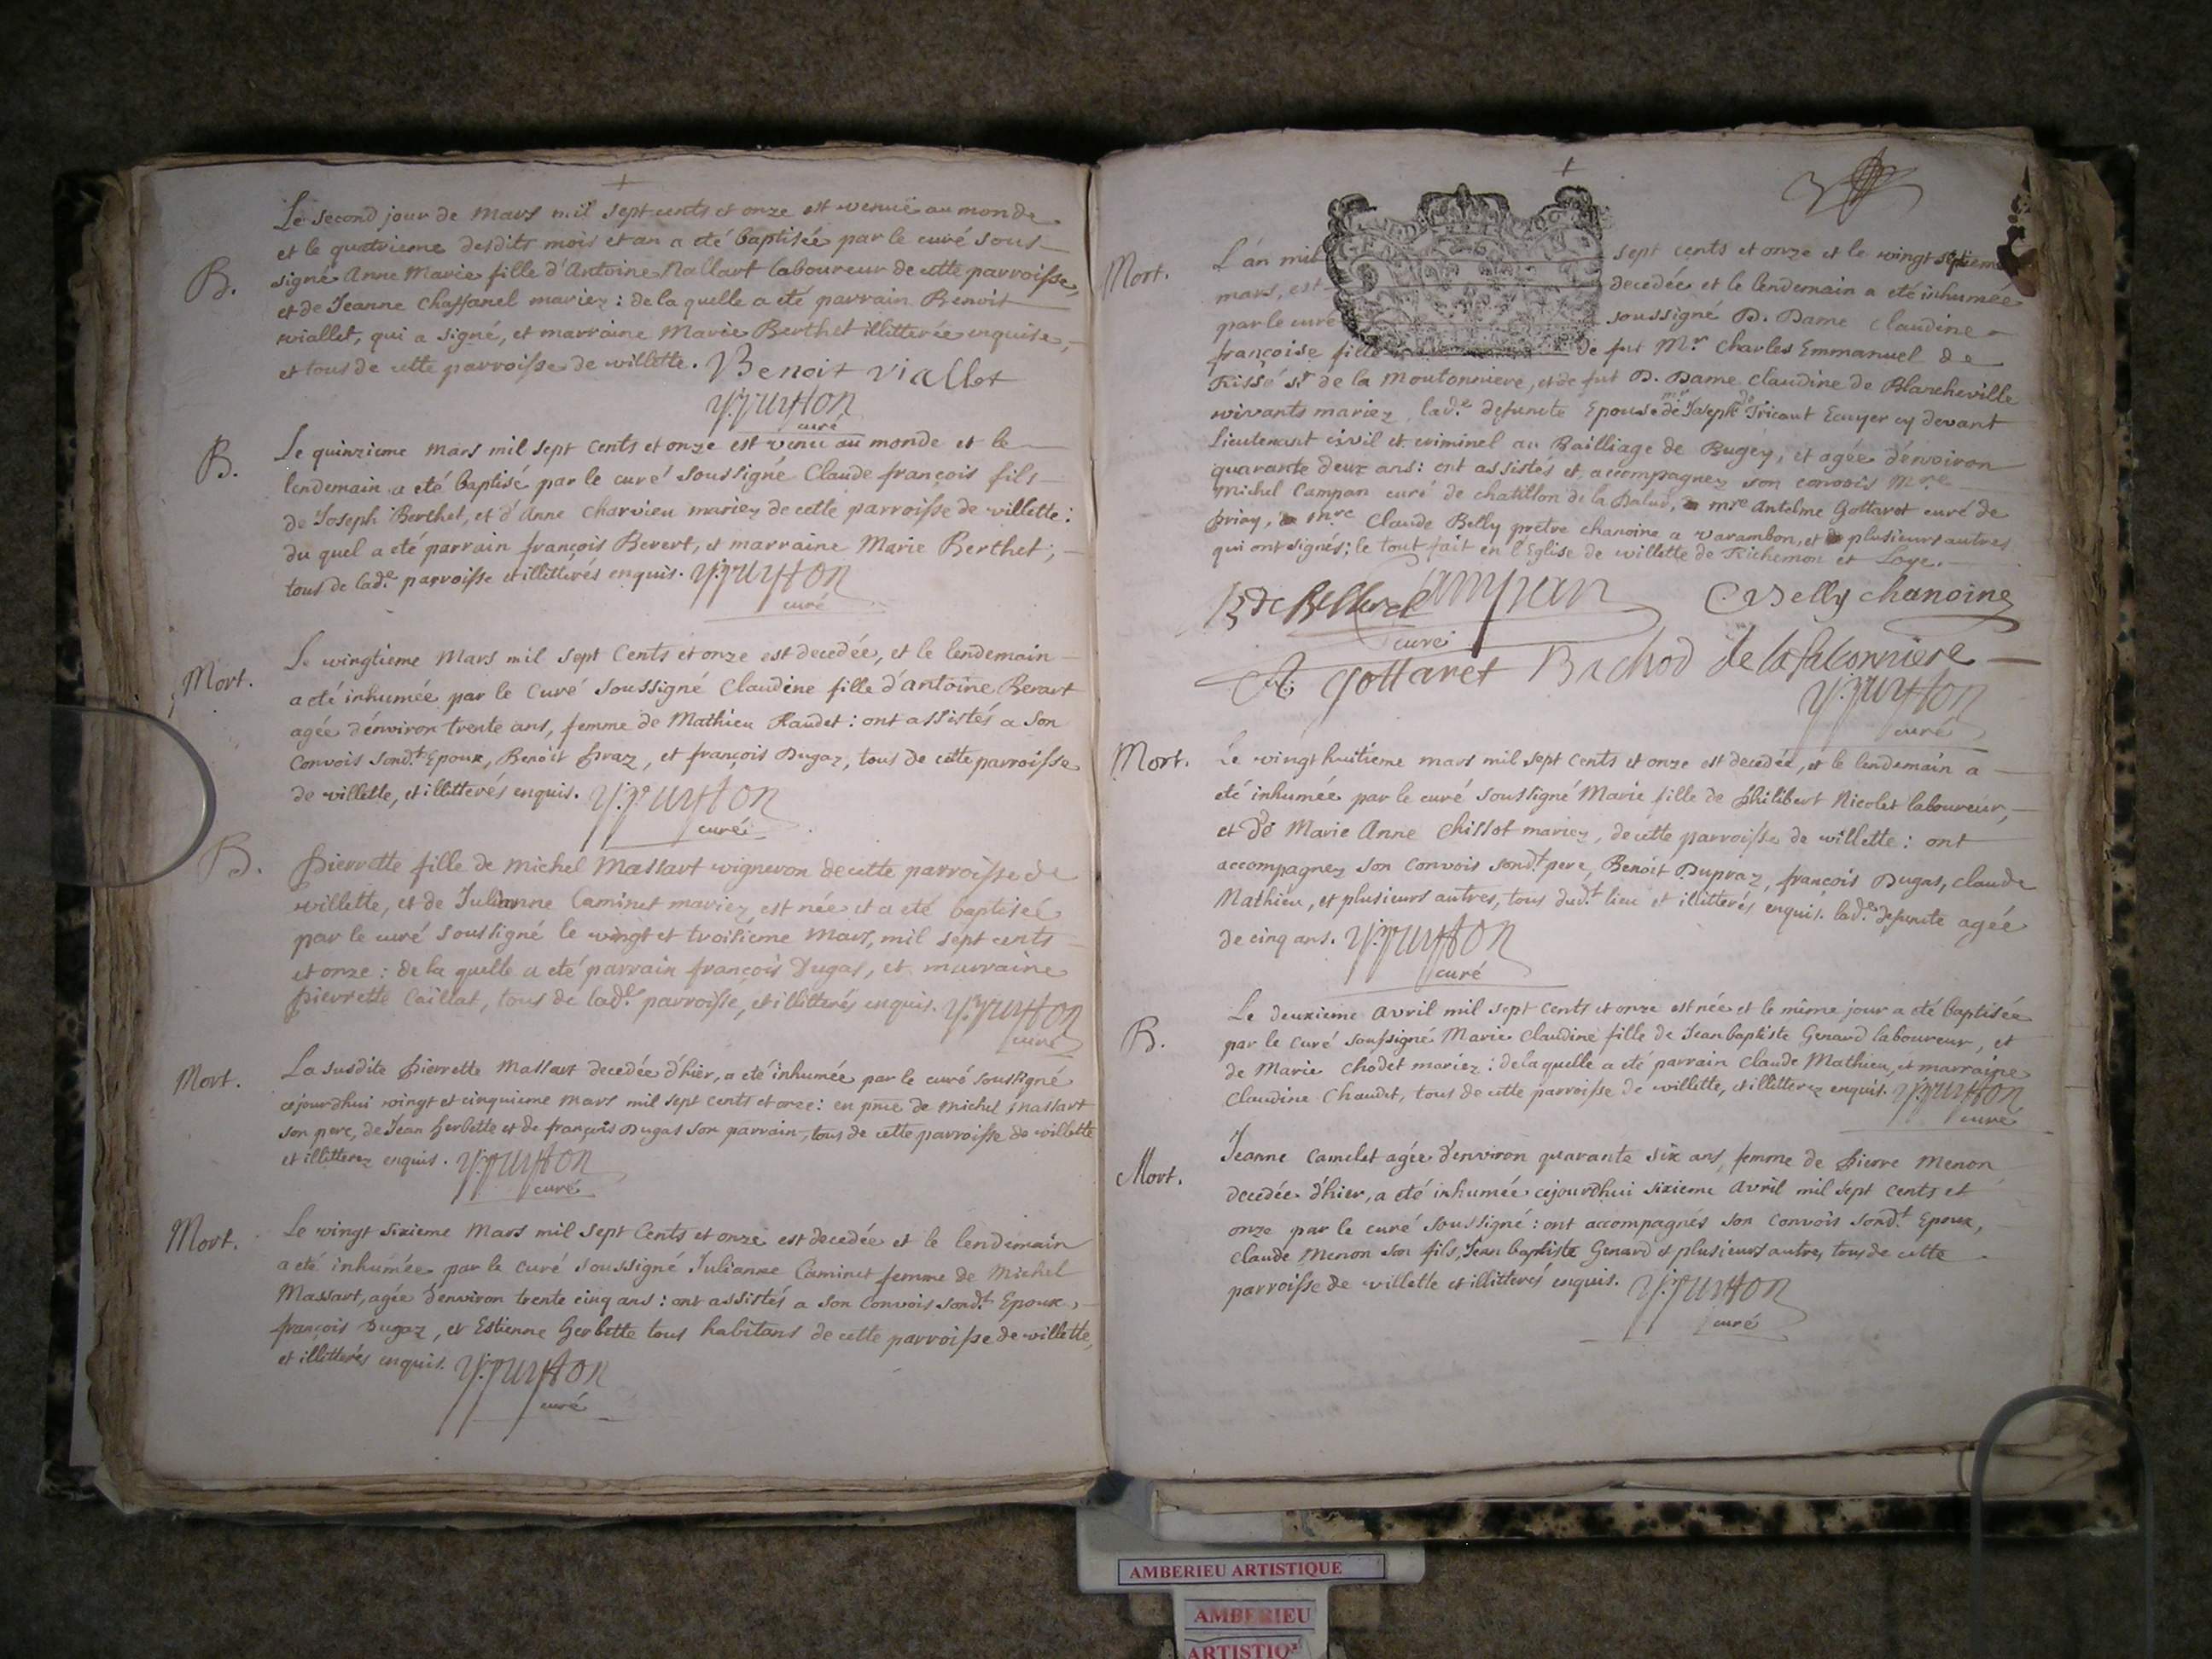 Le second jour de Mars mil sept cents et onze est venuë au monde
et le quatrieme desdits mois et an a eté baptisée par le curé sous-
B.
signé Anne Marie fille d'Antoine Nallart laboureur de cette parroisse,
et de Jeanne Chassanel mariez : de la quelle a eté parrain Benoit
viallet, qui a signé, et marraine Marie Berthet illitterée enquise,
et tous de cette parroisse de villette. Benoit viallet
curé
B.
Le quinzieme Mars mil sept cents et onze est venu au monde et le
lendemain a eté baptisé par le curé soussigné Claude françois fils
de Joseph Berthet, et d'Anne Charvieu mariez de cette parroisse de villette :
du quel a eté parrain françois Revert, et marraine Marie Berthet ;
tous de lad.e parroisse et illitterés enquis.
curé
Mort.
Le vingtieme Mars mil sept Cents et onze est decedée, et le lendemain
a eté inhumée par le Curé soussigné Claudine fille d'antoine Revart
agée d'environ trente ans, femme de Mathieu Haudet : ont assistés a son
Convois sond.t Epoux, Benoit praz, et françois Dugaz, tous de cette parroisse
de villette, et illitterés enquis.
curé
B.
Pierrette fille de Michel Massart vigneron de cette parroisse de
villette, et de Julianne Caminet mariez, est née et a eté baptisée
par le curé soussigné le vingt et troisieme Mars, mil sept cents
et onze : de la quelle a eté parrain françois Dugas, et marraine
pierrette Caillat, tous de lad.e parroisse, et illitterés enquis.
curé
Mort.
La susdite Pierrette Massart decedée d'hier, a eté inhumée par le curé soussigné
cejourdhui vingt et cinquieme Mars mil sept cents et onze : en pñce de Michel Massart
son pere, de Jean Gerbette et de françois Dugas son parrain, tous de cette parroisse de villette
et illitterez enquis.
curé
Mort.
Le vingt sixieme Mars mil sept Cents et onze est decedée et le lendemain
a eté inhumée par le Curé soussigné Julianne Caminet femme de Michel
Massart, agée d'environ trente cinq ans : ont assistés a son Convois sond.t Epoux,
françois Dugaz, et Estienne Gerbette tous habitans de cette parroisse de villette,
et illitterés enquis.
curé
Mort.
L'an mil sept cents et onze et le vingt septieme
mars, est decedée et le lendemain a eté inhumée
par le curé soussigné D. Dame Claudine
françoise fille de fut M.r Charles Emmanuel de
Tissé s.r de la Moutonniere, et de fut D. Dame Claudine de Blancheville
vivants mariez, lad.e defuncte Epouse de m.r Joseph de Tricaut Ecuyer cy devant
Lieutenant civil et criminel au Bailliage de Bugey, et agée d'environ
quarante deux ans : ont assistés et accompagnez son convois M.re
Michel Campan curé de chatillon de la Palud, m.re Antelme Gottaret curé de
priay, m.re Claude Belly prêtre chanoine a varambon, et plusieurs autres
qui ont signés ; le tout fait en l'Eglise de villette de Richemon et Loye.
Campan C Belly chanoine
curé
A gottaret Bachod de la falconniere
curé
Mort.
Le vingt huitieme mars mil sept cents et onze est decedée, et le lendemain a
eté inhumée par le curé soussigné Marie fille de Philibert Nicolet laboureur,
et de Marie Anne Chissot mariez, de cette parroisse de villette : ont
accompagnez son Convois sond.t pere, Benoit Dupraz, françois Dugas, claude
Mathieu, et plusieurs autres, tous dud.t lieu et illitterés enquis. lad.e defuncte agée
de cinq ans.
curé
B.
Le deuxieme avril mil sept Cents et onze est née et le même jour a eté baptisée
par le Curé soussigné Marie Claudine fille de Jean baptiste Genard laboureur, et
de Marie Chodet mariez : de la quelle a eté parrain Claude Mathieu, et marraine
Claudine Chaudet, tous de cette parroisse de villette, et illitterez enquis.
curé
Mort.
Jeanne Camelet agée d'environ quarante six ans, femme de Pierre Menon
decedée d'hier, a eté inhumée cejourdhui sixieme Avril mil sept cents et
onze par le curé soussigné : ont accompagnés son Convois sond.t Epoux,
Claude Menon son fils, Jean baptiste Genard et plusieurs autres, tous de cette
parroisse de villette et illitterés enquis.
curé
AMBERIEU ARTISTIQUE
AMBERIEU
ARTISTIQ